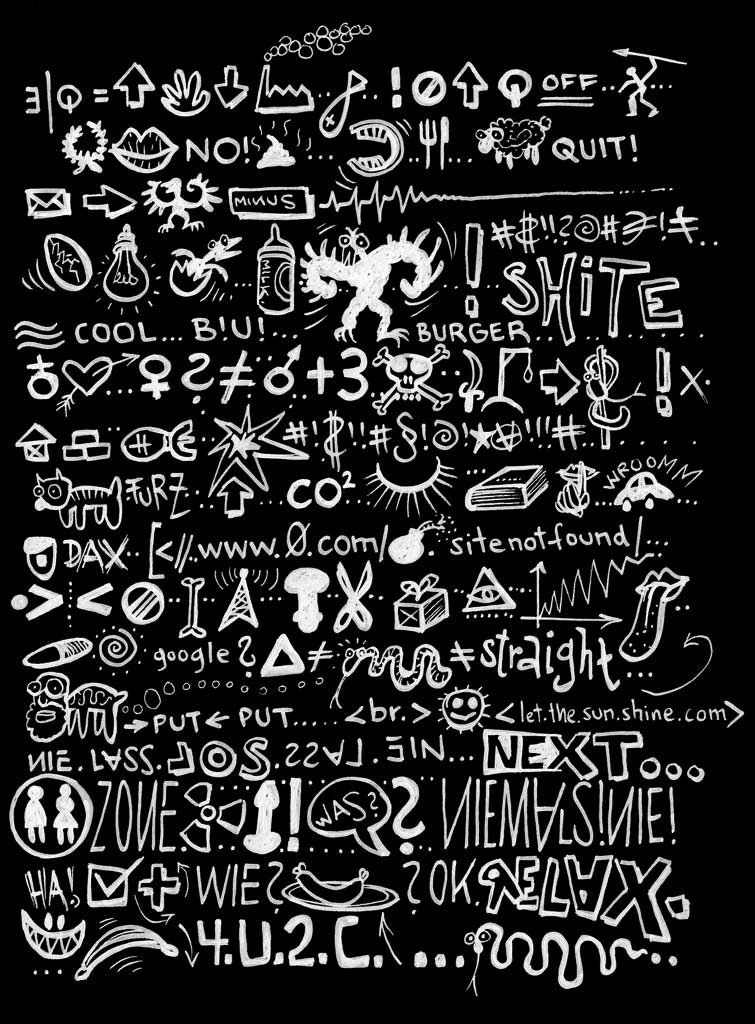 OFF...
NO! ... QUIT!
MINUS
MILK #$!!?@#
SHiTE
COOL... B!U!... BURGER
? ≠ + 3 ! X.
#'!$!!#§!@!★ '''!#
FURZ CO² WROOMM
DAX...[<//.www.0.com/ . sitenotfound/...
> <
google? ≠ ≠ straight...
→PUT←PUT..... <br.> <let.the.sun.shine.com>
NIE.LASS.LOS.SSAL.EIN... NEXT...
ZONE. ! WAS? ? NIEMALS!NIE!
HA! + WIE? ?OK.RELAX.
4.U.2.C. ...